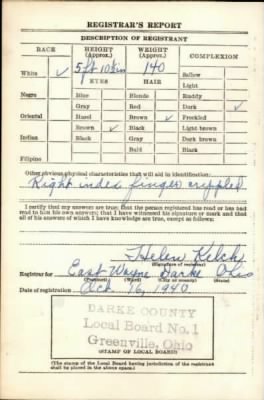 REGISTRAR'S REPORT
DESCRIPTION OF REGISTRANT
RACE HEIGHT (Approx.) WEIGHT (Approx.) COMPLEXION
White ✓ 5 ft 10½ in 140 Sallow
EYES HAIR Light
Negro Blue Blonde Ruddy
Gray Red Dark ✓
Oriental Hazel Brown ✓ Freckled
Brown ✓ Black Light brown
Indian Black Gray Dark brown
Bald Black
Filipino
Other obvious physical characteristics that will aid in identification
Right index finger crippled
I certify that my answers are true; that the person registered has read or has had read to him his own answers; that I have witnessed his signature or mark and that all of his answers of which I have knowledge are true, except as follows:
Helen Kelch
(Signature of registrar)
Registrar for East Wayne Darke Ohio
(Precinct) (Ward) (City or county) (State)
Date of registration Oct. 16, 1940
DARKE COUNTY
Local Board No. 1
Greenville, Ohio
(STAMP OF LOCAL BOARD)
(The stamp of the Local Board having jurisdiction of the registrant shall be placed in the above space.)